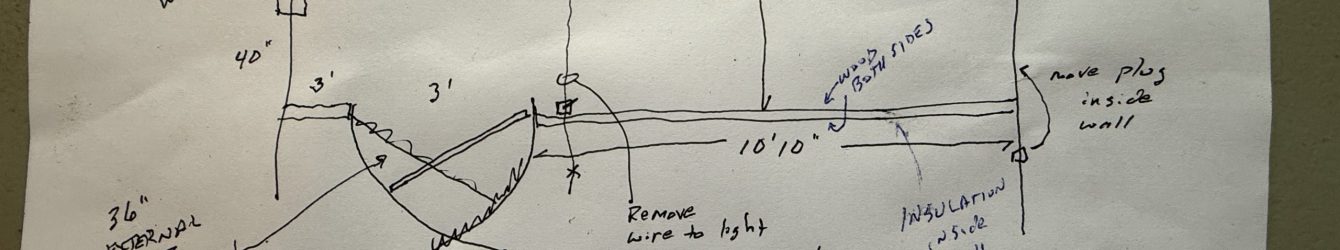 40"
3'
3'
WOOD
BOTH SIDES
move plug
inside
wall
10'10"
36"
EXTERNAL
Remove
wire to light
INSULATION
inside